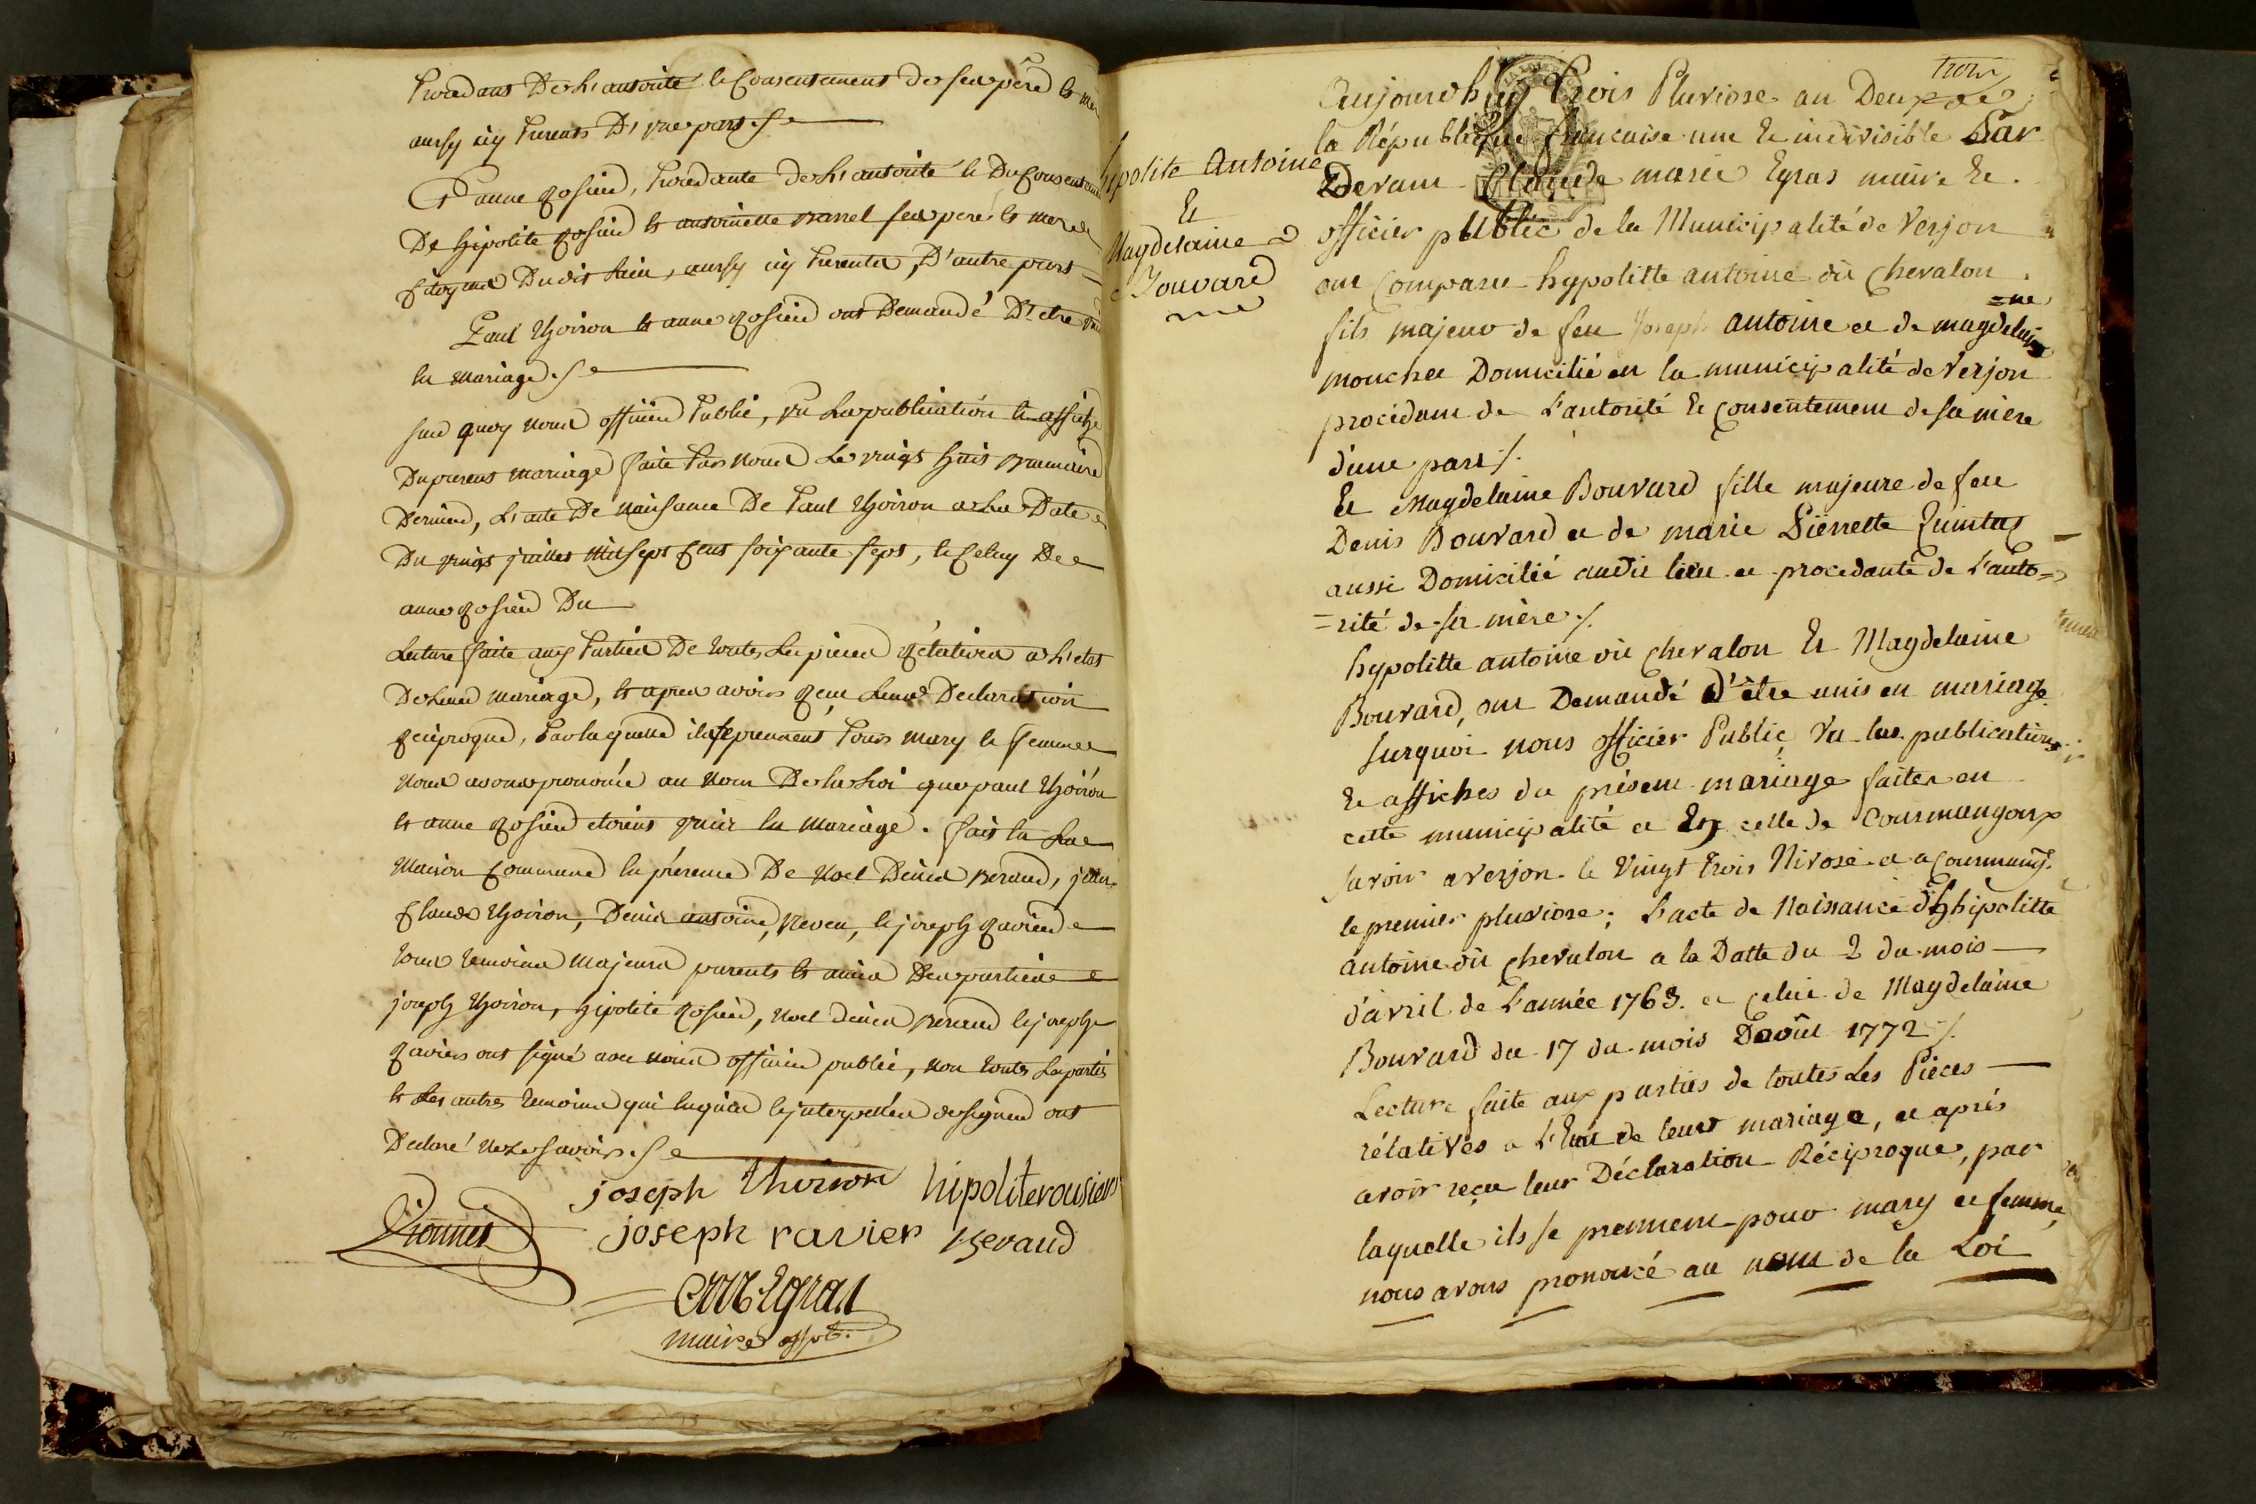 procedant De L'autorité le Consentement de ses père et mer
aussy icy presents D'une part
Et anne rosier, procedante de L'autorité et Du Consentement
De hipolite rosier et antoinette ses pere et mere
Citoyens Dudit Lieu, aussy icy presents, D'autre part
Paul thoiron et anne rosier ont Demandé D'etre
En mariage
sur quoy nous officier Public, vu La publication et affiche
Du present mariage faite Par nous Le vingt huit
Dernier, L'acte De naissance De Paul thoiron a La Date
Du vingt juillet Mil sept Cent soixante sept, et Celuy De
anne rosier Du
Lecture faite aux Parties De toutes Les pieces rélatives a L'etat
De Leur mariage, et apres avoir reçu Leurs Declaration
reciproque, Par laquelle ils se prennent Pour mary et femme
nous avons prononcé au nom De la Loi que paul thoiron
et anne rosier etoient unis En mariage. fait En La
Maison Commune En présence De noel Denis Beraud, jean
Claude thoiron, Denis antoine, neveu, et joseph ravier
tous temoins majeurs parents et amis Des parties
joseph thoiron, hipolite rosier, noel denis Beraud et joseph
ravier ont signé avec nous officier public, non toutes Les parties
et Les autres temoins qui Enquis et interpellés de signer ont
Declaré ne Le savoir
joseph thoiron hipoliterousier
joseph ravier Beraud
Egras
maire off pc.
trois
hipolite Antoine
Et
Magdelaine
Bouvard
Aujourd'huy trois Pluviose an Deux de
la République française une Et indivisible Par
Devant Claude marie Egras maire Et
officier public de la Municipalité de Verjon
ont Comparu hypolitte antoine dit Chevalon
fils majeur de feu Joseph antoine et de magdelai
=ne
mouchet Domicilié en la municipalité de Verjon
procédant de L'autorité Et Consentement de sa mère
d'une part /.
Et Magdelaine Bouvard fille majeure de feu
Denis Bouvard et de marie Pierrette
aussi Domicilié audit lieu et procedante de L'auto=
=rité de sa mère /.
hypolitte antoine dit chevalon Et Magdelaine
Bouvard, ont Demandé d'être unis en mariage.
Surquoi nous officier Public, Vu les publications
Et affiches du présent mariage faites en
cette municipalité et En celle de Courmangoux
savoir a Verjon le Vingt trois Nivose et a Courmang.
le premier pluviose; L'acte de Naissance d'hipolitte
antoine dit chevalon a la Datte du 2 du mois
d'avril de L'année 1768. et celui de Magdelaine
Bouvard du 17 du mois Daoût 1772 /.
Lecture faite aux parties de toutes Les Pièces
rélatives a L'Etat de leur mariage, et après
avoir reçu leur Déclaration Réciproque, par
laquelle ils se prennent pour mary et femme,
nous avons prononcé au nom de la Loi